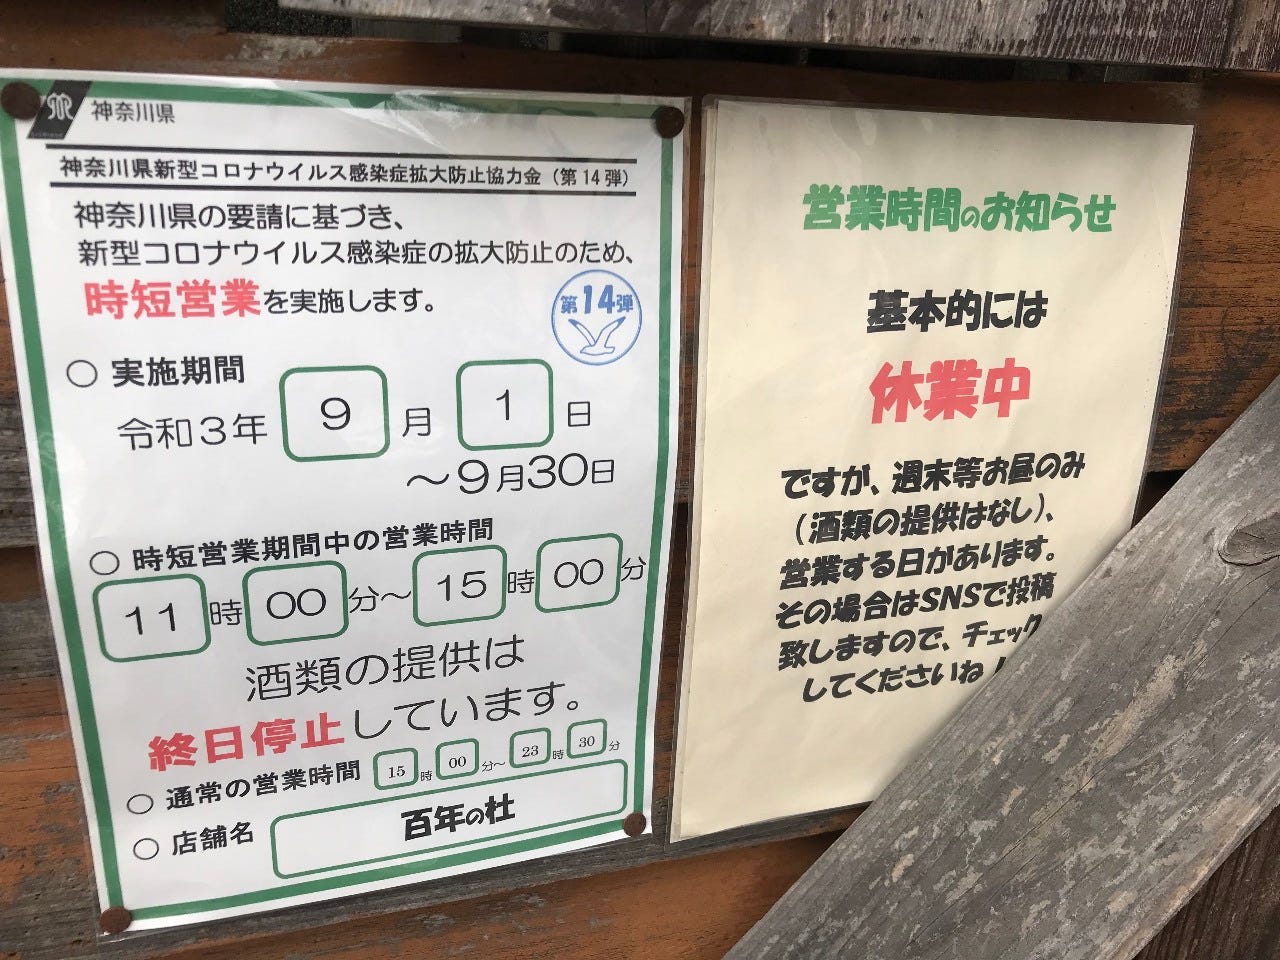 神奈川県
神奈川県新型コロナウイルス感染症拡大防止協力金（第14弾）
神奈川県の要請に基づき、
新型コロナウイルス感染症の拡大防止のため、
時短営業を実施します。
第14弾
○ 実施期間
令和3年 9 月 1 日
～9月30日
○ 時短営業期間中の営業時間
11 時 00 分～ 15 時 00 分
酒類の提供は
終日停止しています。
○ 通常の営業時間 15 時 00 分～ 23 時 30 分
○ 店舗名 百年の杜
営業時間のお知らせ
基本的には
休業中
ですが、週末等お昼のみ
（酒類の提供はなし）、
営業する日があります。
その場合はSNSで投稿
致しますので、チェック
してくださいね！